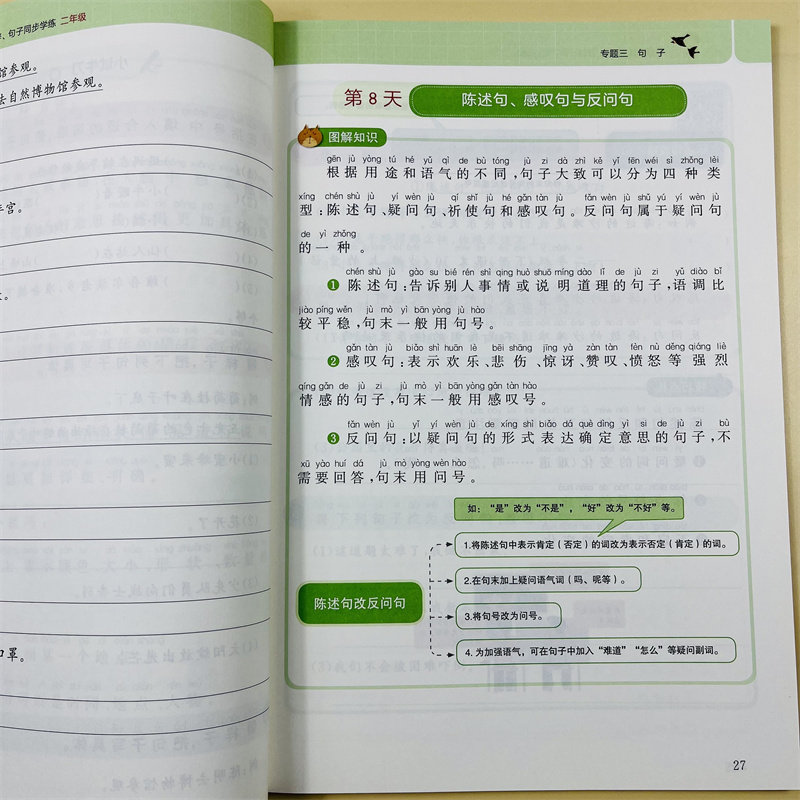 句子同步学练 二年级
馆参观。
去自然博物馆参观。
年宫。
口罩。
专题三 句 子
第 8 天
陈述句、感叹句与反问句
图解知识
gēn jù yòng tú hé yǔ qì de bù tóng jù zi dà zhì kě yǐ fēn wéi sì zhǒng lèi
根据用途和语气的不同，句子大致可以分为四种类
xíng chén shù jù yí wèn jù qí shǐ jù hé gǎn tàn jù fǎn wèn jù shǔ yú yí wèn jù
型：陈述句、疑问句、祈使句和感叹句。反问句属于疑问句
de yì zhǒng
的一种。
chén shù jù gào su bié rén shì qing huò shuō míng dào lǐ de jù zi yǔ diào bǐ
❶ 陈述句：告诉别人事情或说明道理的句子，语调比
jiào píng wěn jù mò yì bān yòng jù hào
较平稳，句末一般用句号。
gǎn tàn jù biǎo shì huān lè bēi shāng jīng yà zàn tàn fèn nù děng qiáng liè
❷ 感叹句：表示欢乐、悲伤、惊讶、赞叹、愤怒等强烈
qíng gǎn de jù zi jù mò yì bān yòng gǎn tàn hào
情感的句子，句末一般用感叹号。
fǎn wèn jù yǐ yí wèn jù de xíng shì biǎo dá què dìng yì si de jù zi bù
❸ 反问句：以疑问句的形式表达确定意思的句子，不
xū yào huí dá jù mò yòng wèn hào
需要回答，句末用问号。
如：“是”改为“不是”，“好”改为“不好”等。
1.将陈述句中表示肯定（否定）的词改为表示否定（肯定）的词。
2.在句末加上疑问语气词（吗、呢等）。
陈述句改反问句
3.将句号改为问号。
4. 为加强语气，可在句子中加入“难道”“怎么”等疑问副词。
27